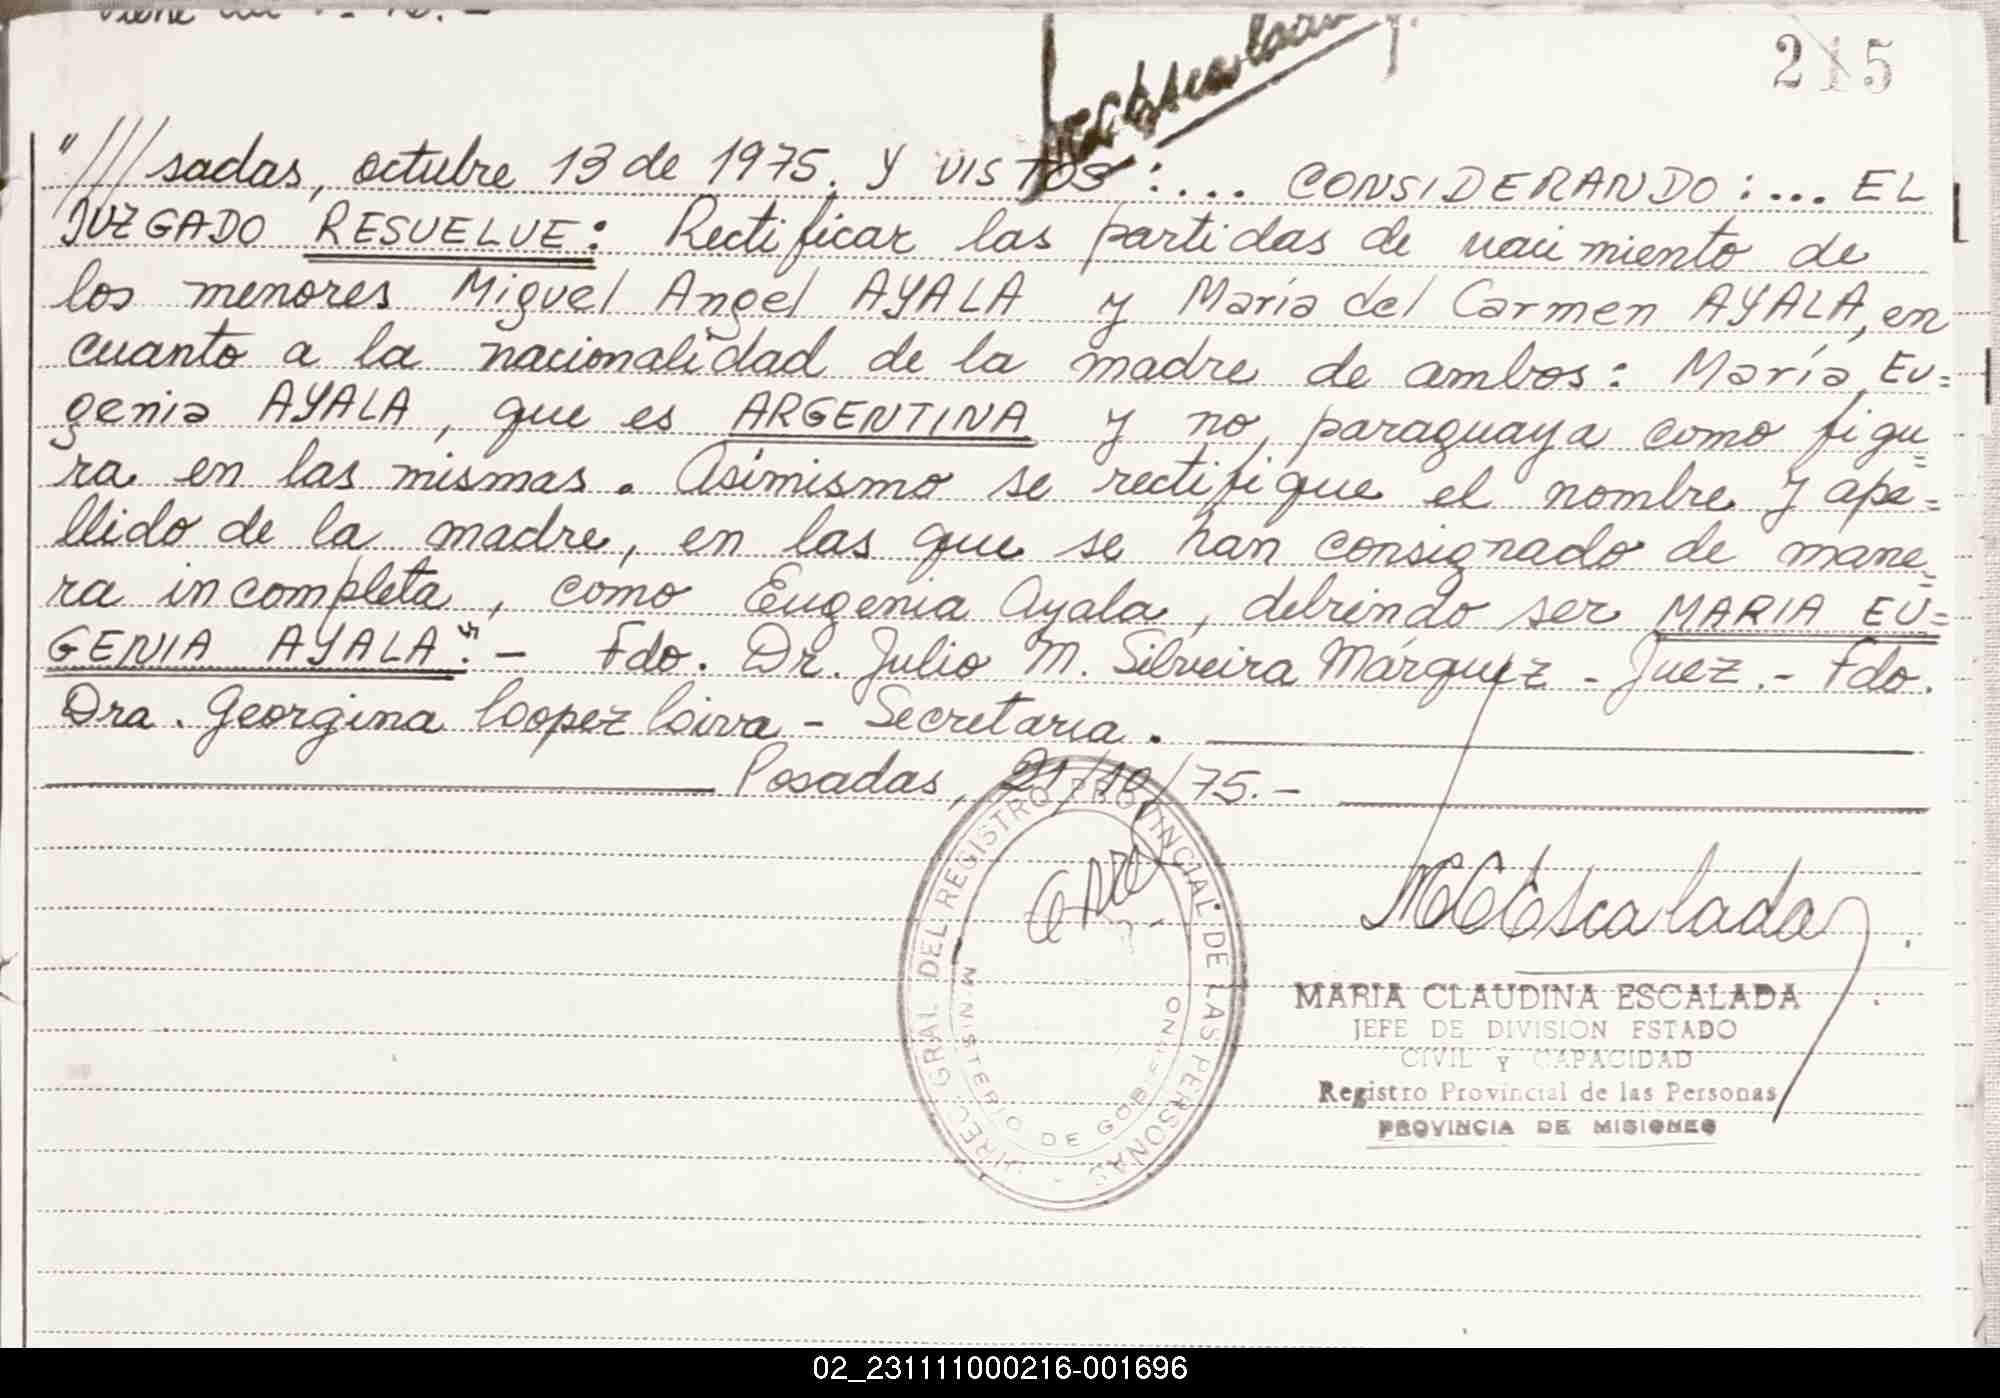 215
"///sadas, octubre 13 de 1975. Y VISTOS:... CONSIDERANDO:... EL
JUZGADO RESUELVE: Rectificar las partidas de nacimiento de
los menores Miguel Angel AYALA y María del Carmen AYALA, en
cuanto a la nacionalidad de la madre de ambos: María Eu=
genia AYALA, que es ARGENTINA y no paraguaya como figu=
ra en las mismas. Asimismo se rectifique el nombre y ape=
llido de la madre, en las que se han consignado de mane=
ra incompleta, como Eugenia Ayala, debiendo ser MARIA EU=
GENIA AYALA". - Fdo. Dr. Julio M. Silveira Márquez - Juez. - Fdo.
Dra. Georgina - Secretaria.
Posadas, 21/10/75. -
MCEscalada
DIREC. GRAL DEL REGISTRO PROVINCIAL DE LAS PERSONAS
MINISTERIO DE GOBIERNO
MARIA CLAUDINA ESCALADA
JEFE DE DIVISION ESTADO
CIVIL Y CAPACIDAD
Registro Provincial de las Personas
PROVINCIA DE MISIONES
02_231111000216-001696